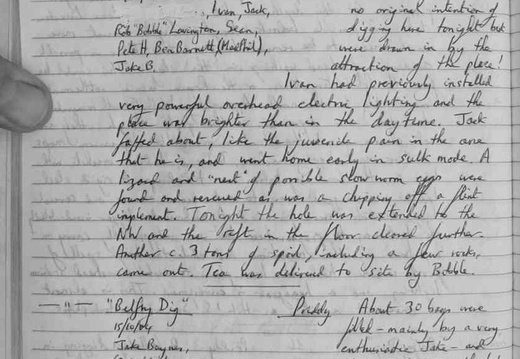 Ivan, Jack, no original intention of
Rob "Bobble" Lavington, Sean, digging here tonight but
Pete H, Ben Barnett (MadPhil), were drawn in by the
Jake B. attraction of the place!
Ivan had previously installed
very powerful overhead electric lighting and the
place was brighter than in the daytime. Jack
faffed about, like the juvenile pain in the arse
that he is, and went home early in sulk mode. A
lizard and "nest" of possible slow worm eggs were
found and rescued as was a chipping off a flint
implement. Tonight the hole was extended to the
NW and the rift in the floor cleared further.
Another c. 3 tons of spoil, including a few rocks,
came out. Tea was delivered to site by Bobble.
— " — "Belfry Dig" Priddy About 30 bags were
15/10/04, filled - mainly by a very
Jake Baynes, enthusiastic Jake - and